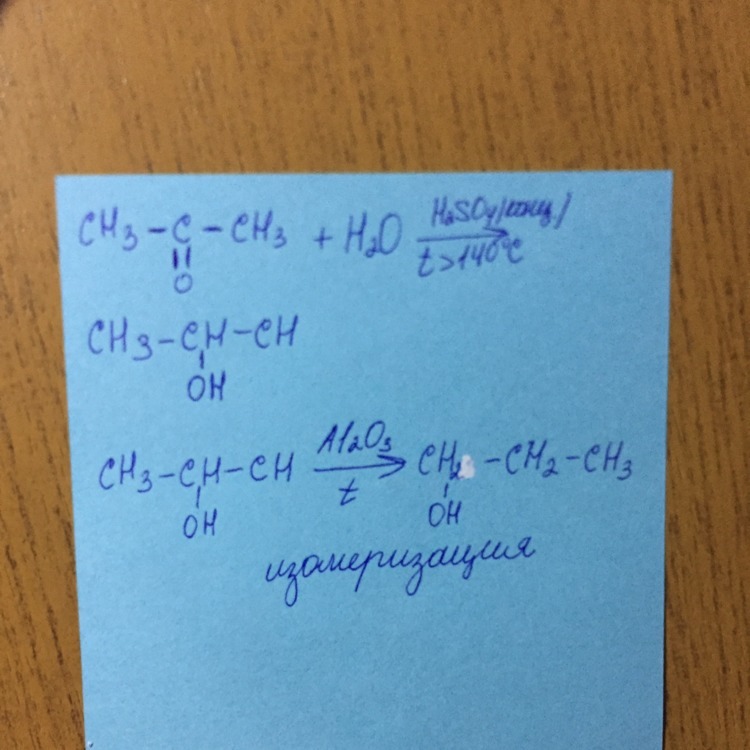 CH3-C-CH3 + H2O H2SO4/конц/
t>140°C
O
CH3-CH-CH
OH
CH3-CH-CH Al2O3 CH2-CH2-CH3
t
OH OH
изомеризация